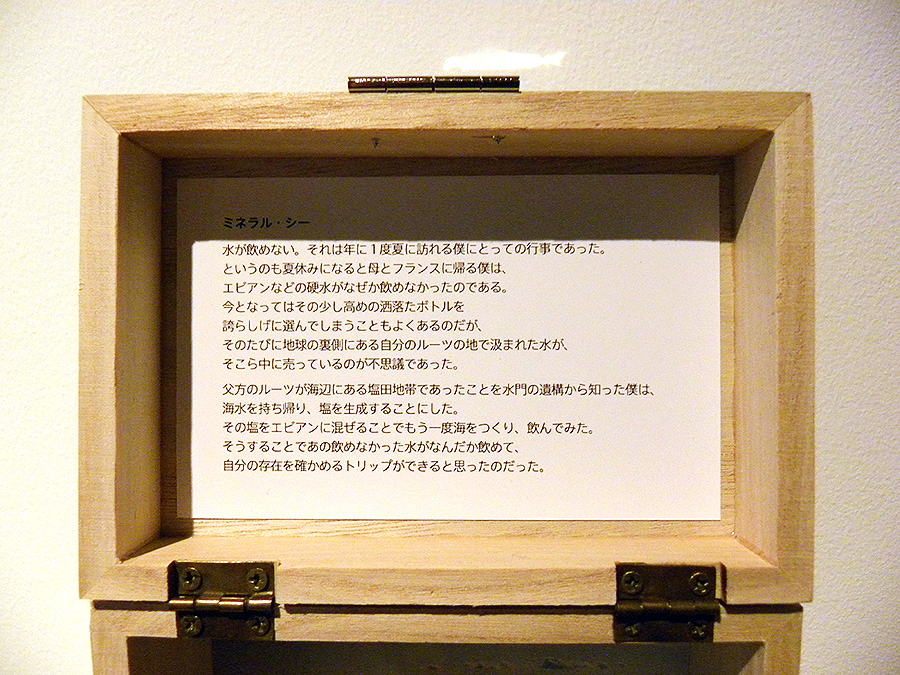 ミネラル・シー
水が飲めない。それは年に1度夏に訪れる僕にとっての行事であった。
というのも夏休みになると母とフランスに帰る僕は、
エビアンなどの硬水がなぜか飲めなかったのである。
今となってはその少し高めの洒落たボトルを
誇らしげに選んでしまうこともよくあるのだが、
そのたびに地球の裏側にある自分のルーツの地で汲まれた水が、
そこら中に売っているのが不思議であった。
父方のルーツが海辺にある塩田地帯であったことを水門の遺構から知った僕は、
海水を持ち帰り、塩を生成することにした。
その塩をエビアンに混ぜることでもう一度海をつくり、飲んでみた。
そうすることであの飲めなかった水がなんだか飲めて、
自分の存在を確かめるトリップができると思ったのだった。